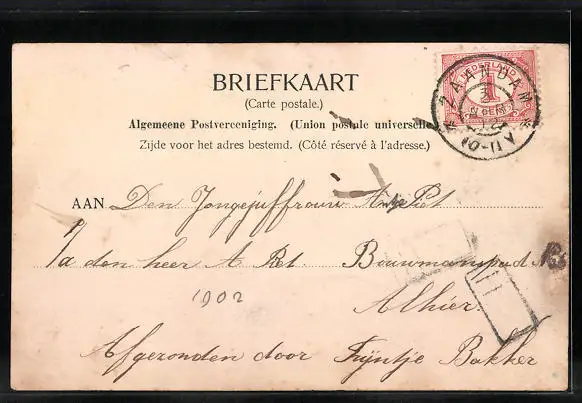 BRIEFKAART
(Carte postale.)
Algemeene Postvereeniging. (Union postale universelle
Zijde voor het adres bestemd. (Côté réservé à l'adresse.)
NEDERLAND
1
CENT
ZAANDAM
AAN Den Jongejuffrouw Antje Piet
p/a den heer A. Piet. Bouwmanspad
1902
Alhier.
Afgezonden door Trijntje Bakker